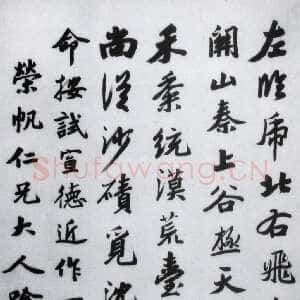 左北右飛
關山秦上谷極天
禾黍漠荒臺
尚從沙磧覓沈
命按試宣德近作
榮帆仁兄大人
Shufawang.CN